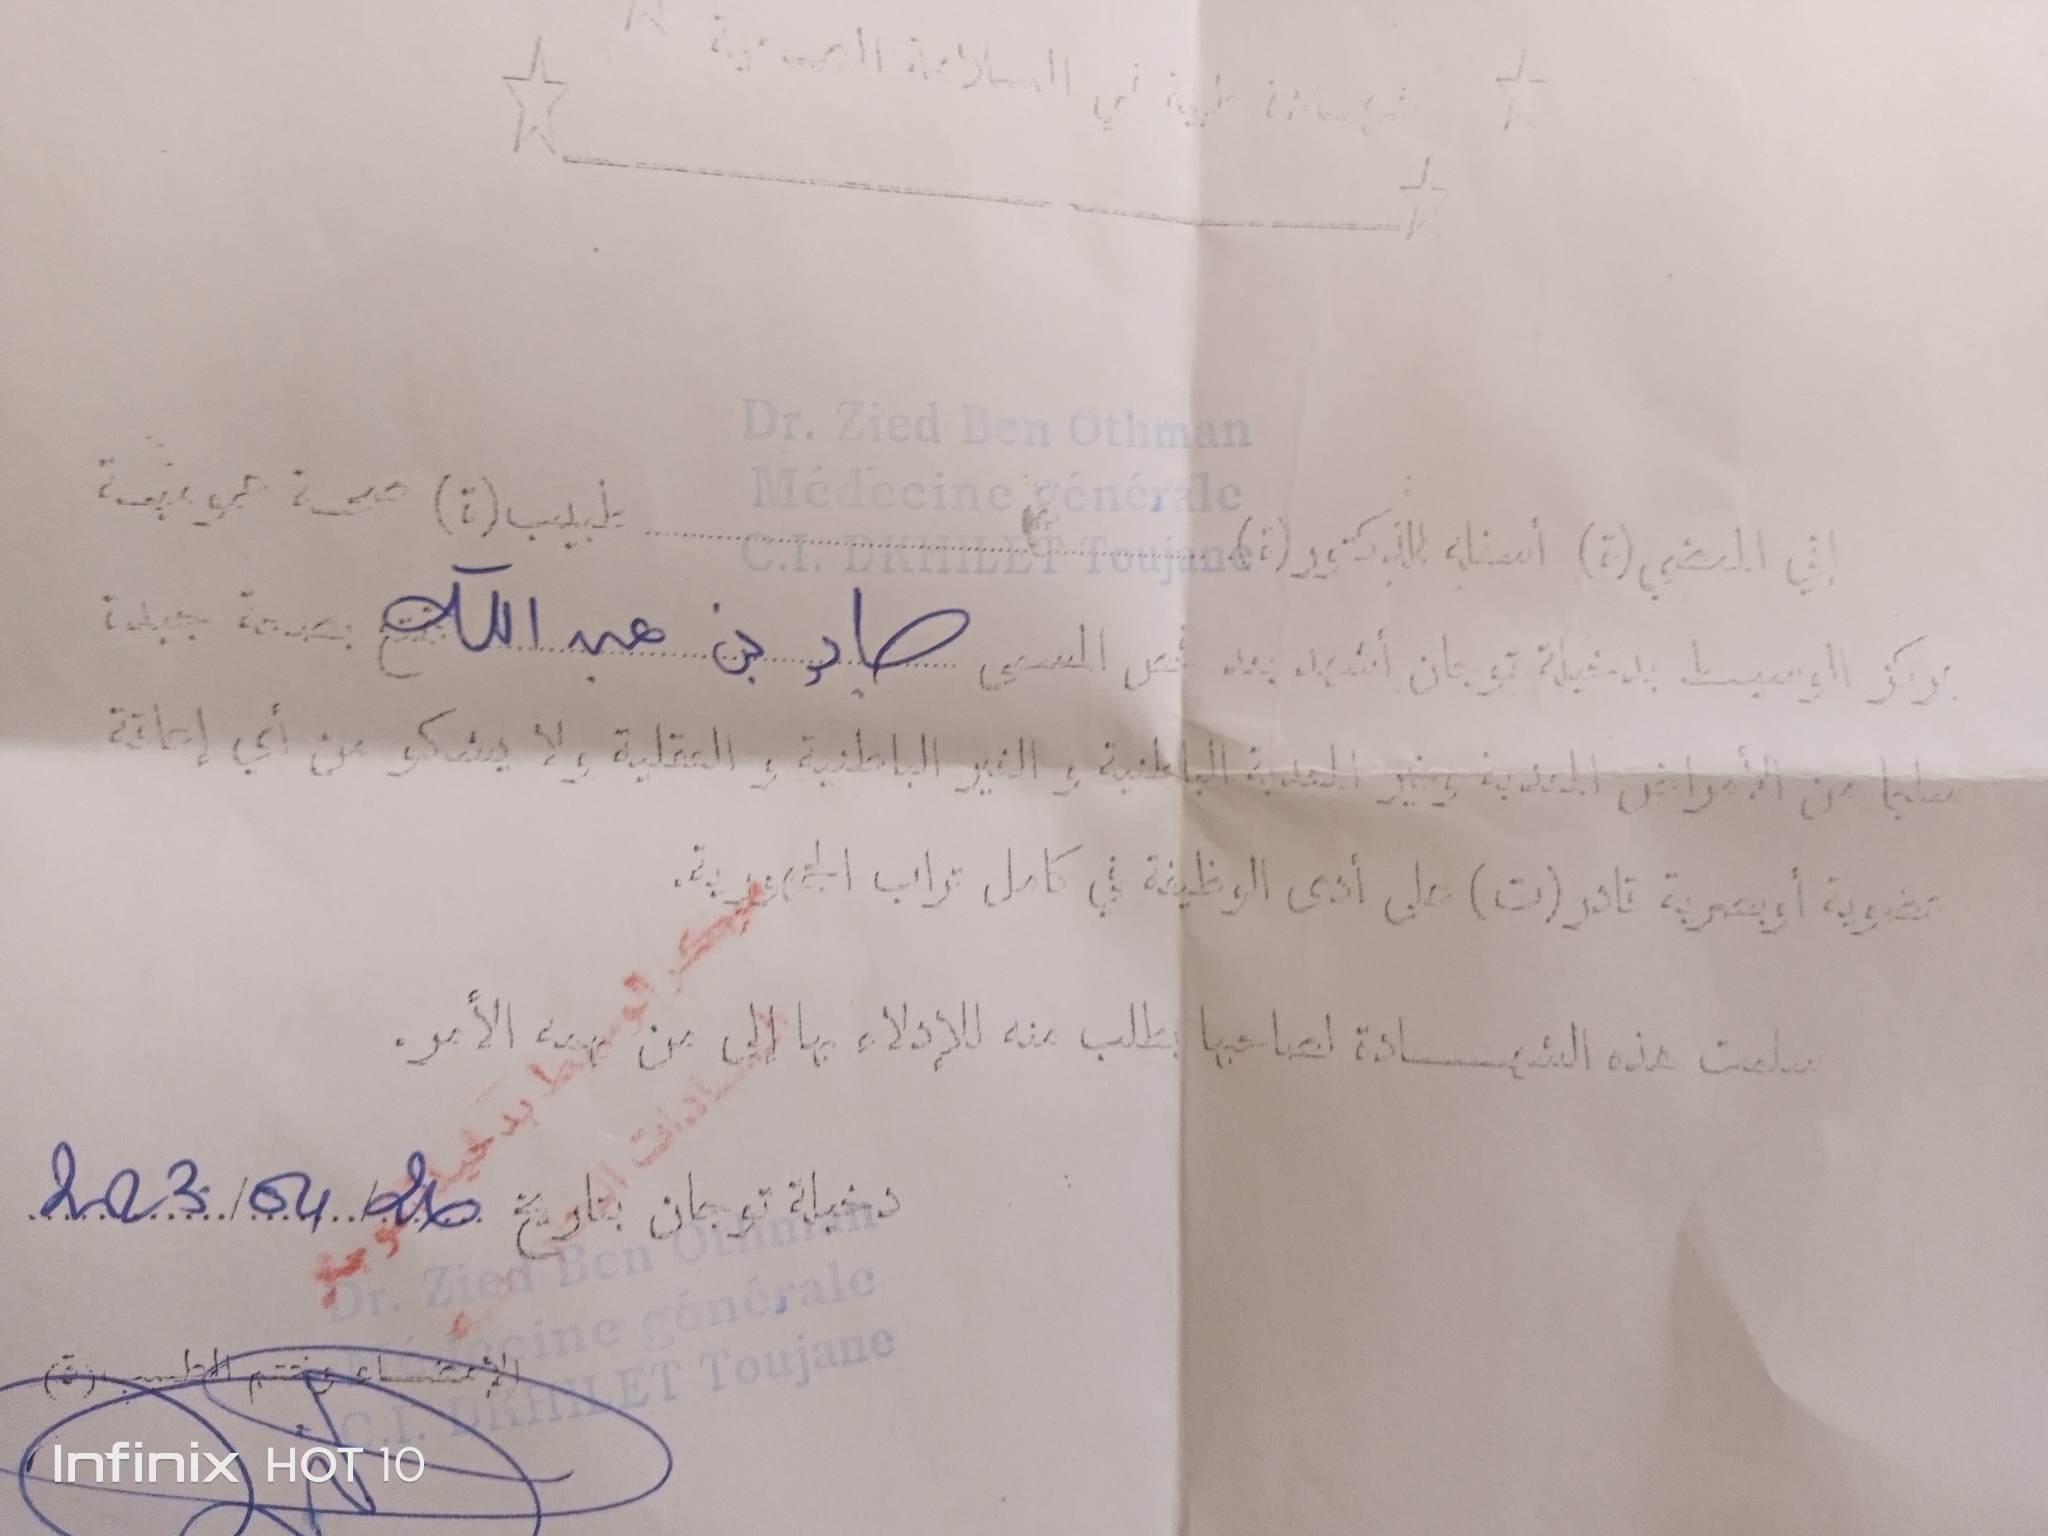 شهادة طبية في السلامة الجسدية
Dr. Zied Ben Othman
Médecine générale
C.I. DKHILET Toujane
إني الممضي (ة) أسفله الدكتور (ة) طبيب (ة) صحة عمومية
بمركز الوسيط بدخيلة توجان أشهد بعد فحص المسمى بن عبد المالك يتمتع بصحة جيدة
سليما من الأمراض المعدية وغير المعدية الباطنية و الغير الباطنية و العقلية ولا يشكو من أي إعاقة
عضوية أوبصرية قادر (ت) على أدى الوظيفة في كامل تراب الجمهورية.
سلمت هذه الشهـــــادة لصاحبها بطلب منه للإدلاء بها إلى من يهمه الأمر.
دخيلة توجان بتاريخ 26/04/2023
Dr. Zied Ben Othman
Médecine générale
C.I. DKHILET Toujane
الإمضـــاء وختم الطبيب (ة)
Infinix HOT 10